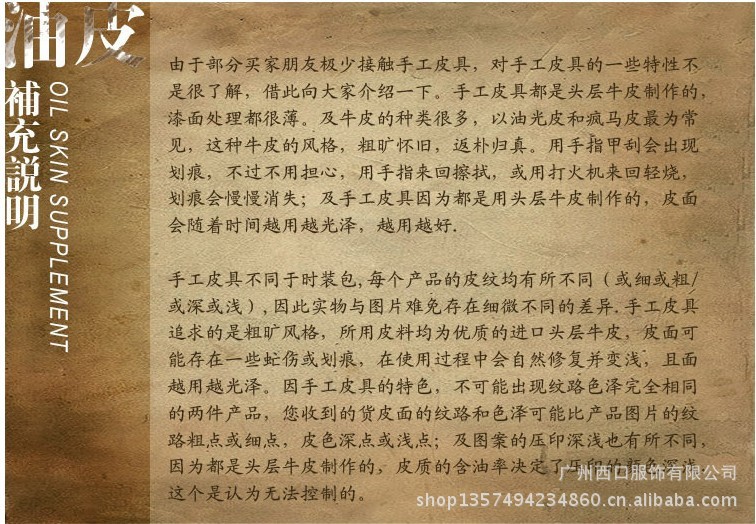 油皮
補充説明
OIL SKIN SUPPLEMENT
由于部分买家朋友极少接触手工皮具，对手工皮具的一些特性不
是很了解，借此向大家介绍一下。手工皮具都是头层牛皮制作的，
漆面处理都很薄。及牛皮的种类很多，以油光皮和疯马皮最为常
见，这种牛皮的风格，粗旷怀旧，返朴归真。用手指甲刮会出现
划痕，不过不用担心，用手指来回擦拭，或用打火机来回轻烧，
划痕会慢慢消失；及手工皮具因为都是用头层牛皮制作的，皮面
会随着时间越用越光泽，越用越好.
手工皮具不同于时装包,每个产品的皮纹均有所不同（或细或粗/
或深或浅）,因此实物与图片难免存在细微不同的差异.手工皮具
追求的是粗旷风格，所用皮料均为优质的进口头层牛皮，皮面可
能存在一些虻伤或划痕，在使用过程中会自然修复并变浅，且面
越用越光泽。因手工皮具的特色，不可能出现纹路色泽完全相同
的两件产品，您收到的货皮面的纹路和色泽可能比产品图片的纹
路粗点或细点，皮色深点或浅点；及图案的压印深浅也有所不同，
因为都是头层牛皮制作的，皮质的含油率决定了压印的颜色深浅.
这个是认为无法控制的。
广州西口服饰有限公司
shop1357494234860.cn.alibaba.com